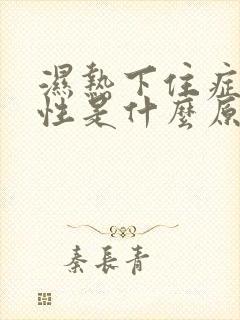 濕熱下住症
性是什麼原
秦長青